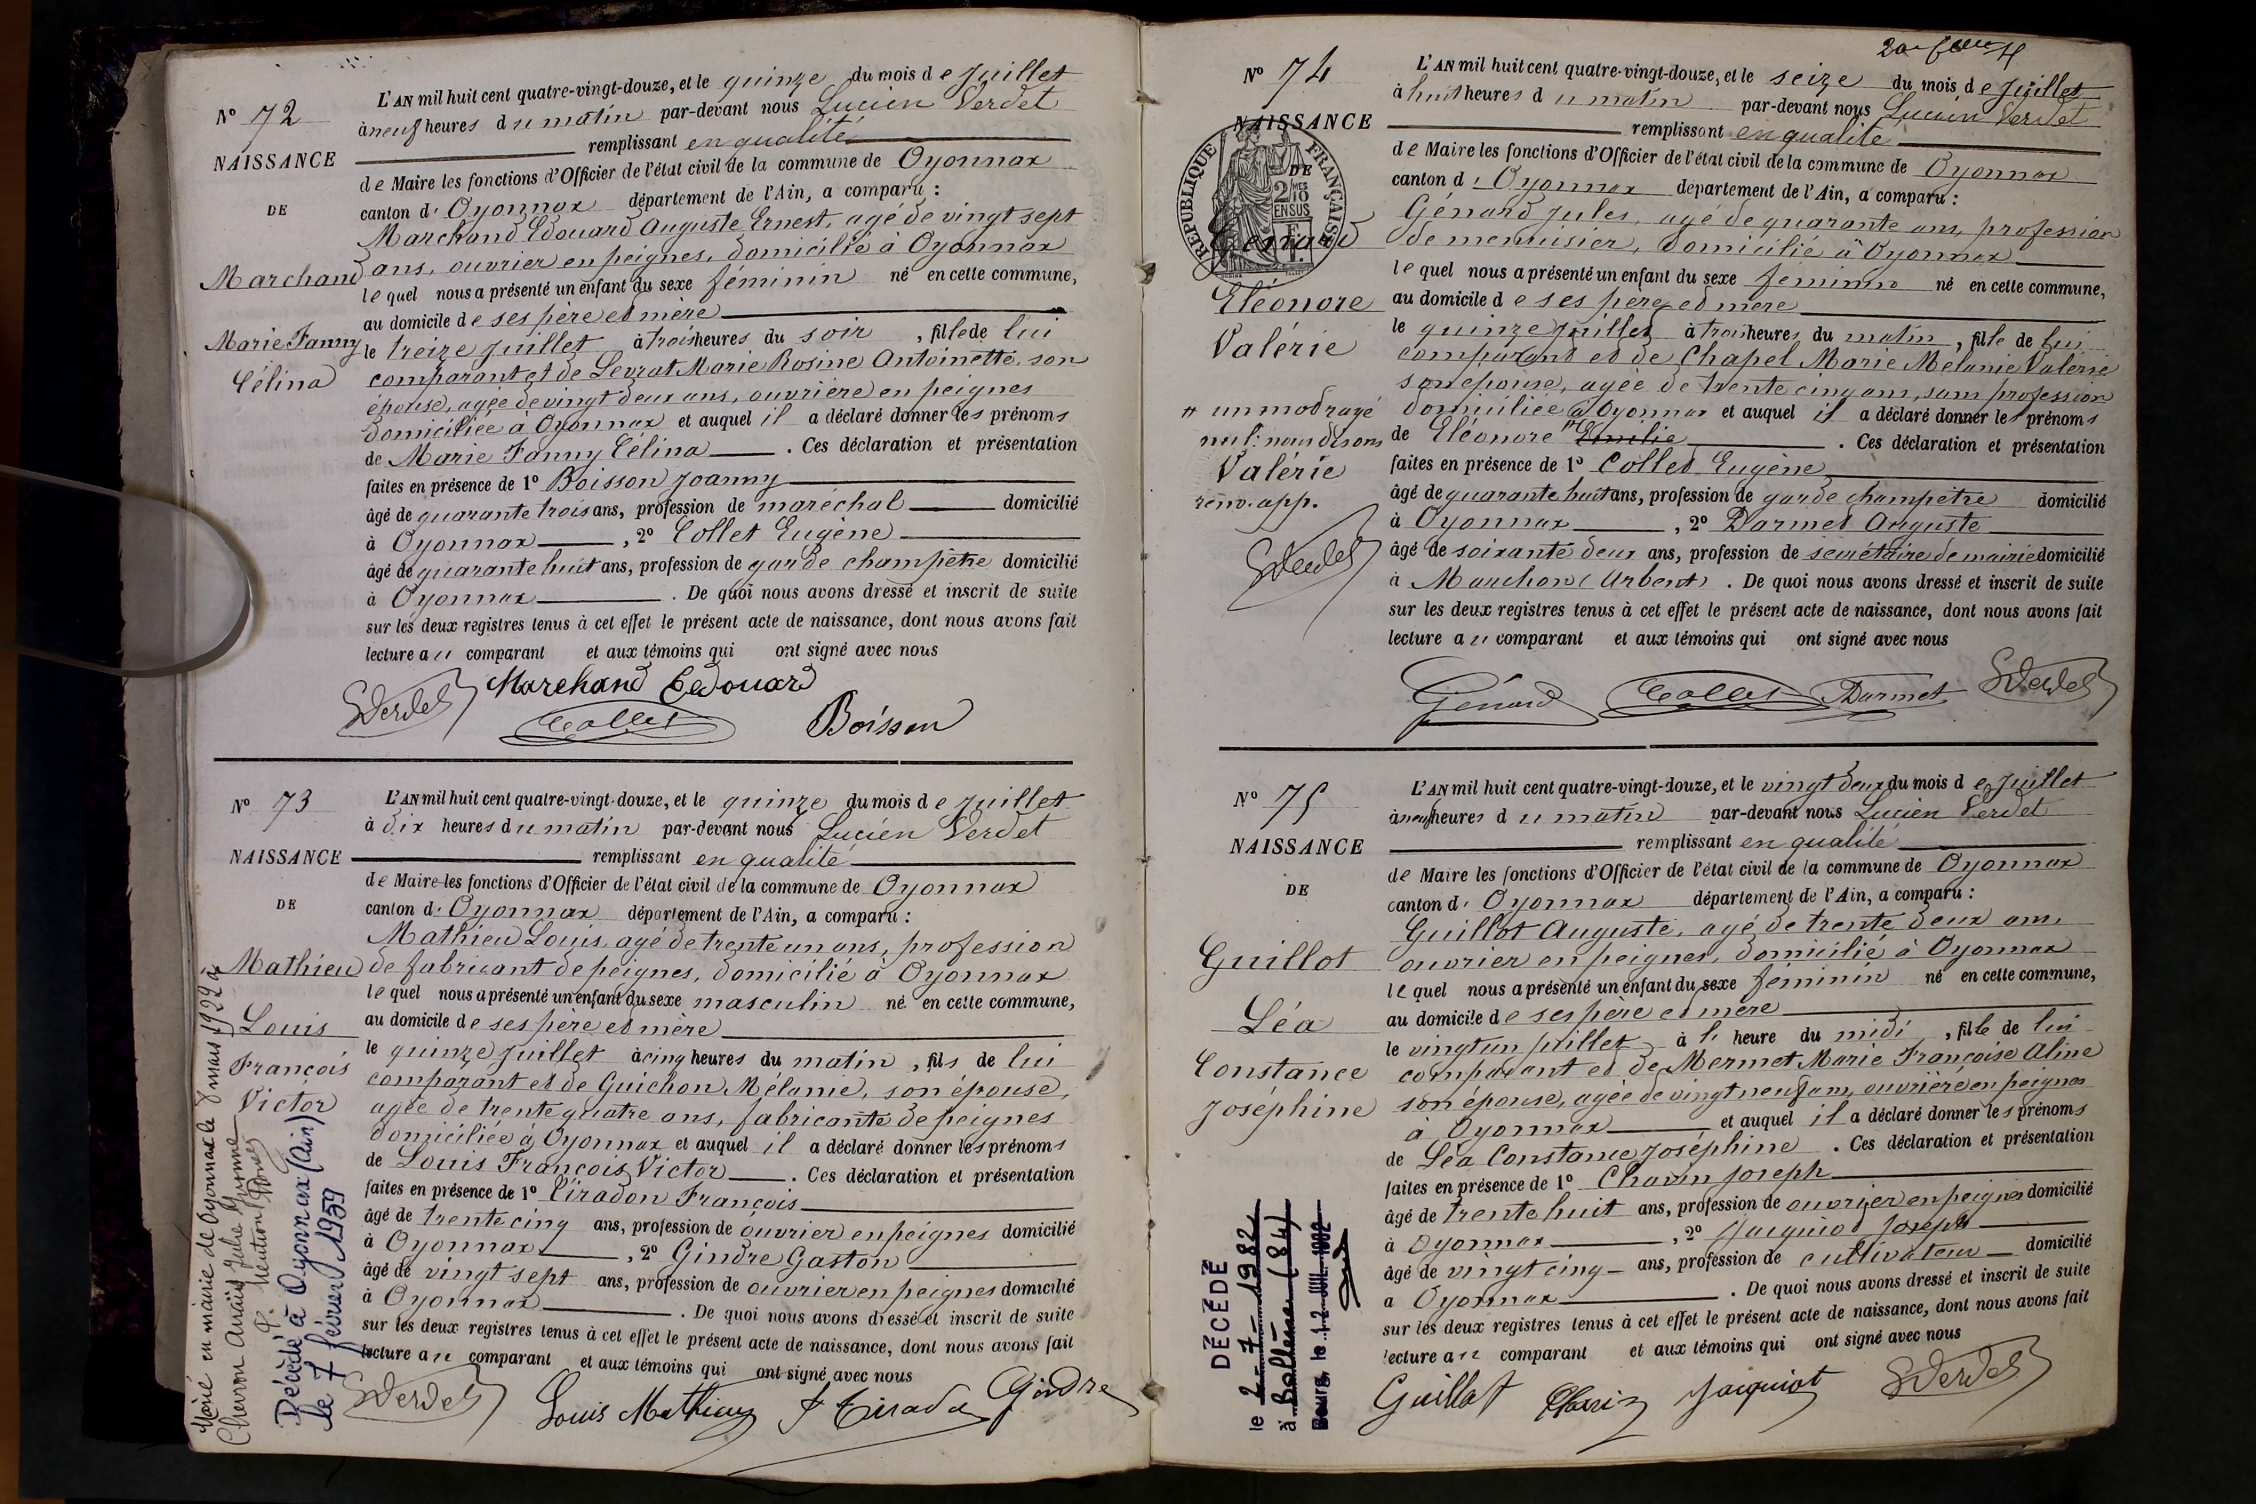 N° 72
NAISSANCE
DE
Marchand
Marie Fanny
Célina
L'AN mil huit cent quatre-vingt-douze, et le quinze du mois de Juillet
à neuf heures du matin par-devant nous Lucien Verdet
remplissant en qualité
de Maire les fonctions d'Officier de l'état civil de la commune de Oyonnax
canton d' Oyonnax département de l'Ain, a comparu :
Marchand Edouard Auguste Ernest, agé de vingt sept
ans, ouvrier en peignes, domicilié à Oyonnax
lequel nous a présenté un enfant du sexe féminin né en cette commune,
au domicile de ses père et mère
le treize juillet à trois heures du soir, fille de lui
comparant et de Levrat Marie Rosine Antoinette, son
épouse, agée de vingt deux ans, ouvrière en peignes
domiciliée à Oyonnax et auquel il a déclaré donner les prénoms
de Marie Fanny Célina . Ces déclaration et présentation
faites en présence de 1° Boisson Joanny
âgé de quarante trois ans, profession de maréchal domicilié
à Oyonnax , 2° Collet Eugène
âgé de quarante huit ans, profession de garde champêtre domicilié
à Oyonnax . De quoi nous avons dressé et inscrit de suite
sur les deux registres tenus à cet effet le présent acte de naissance, dont nous avons fait
lecture au comparant et aux témoins qui ont signé avec nous
Marchand Edouard
LVerdet Collet Boisson
N° 73
NAISSANCE
DE
Mathieu
Louis
François
Victor
Marié en mairie de Oyonnax le 8 mars 1922 à
Chevron Anaïs Julie Yvonne
Décédé à Oyonnax (Ain)
le 7 février 1959
L'AN mil huit cent quatre-vingt-douze, et le quinze du mois de Juillet
à dix heures du matin par-devant nous Lucien Verdet
remplissant en qualité
de Maire les fonctions d'Officier de l'état civil de la commune de Oyonnax
canton d' Oyonnax département de l'Ain, a comparu :
Mathieu Louis, agé de trente un ans, profession
de fabricant de peignes, domicilié à Oyonnax
lequel nous a présenté un enfant du sexe masculin né en cette commune,
au domicile de ses père et mère
le quinze juillet à cinq heures du matin, fils de lui
comparant et de Guichon Mélanie, son épouse,
agée de trente quatre ans, fabricante de peignes
domiciliée à Oyonnax et auquel il a déclaré donner les prénoms
de Louis François Victor . Ces déclaration et présentation
faites en présence de 1° Tiradon François
âgé de trente cinq ans, profession de ouvrier en peignes domicilié
à Oyonnax , 2° Gindre Gaston
âgé de vingt sept ans, profession de ouvrier en peignes domicilié
à Oyonnax . De quoi nous avons dressé et inscrit de suite
sur les deux registres tenus à cet effet le présent acte de naissance, dont nous avons fait
lecture au comparant et aux témoins qui ont signé avec nous
LVerdet Louis Mathieu F Tirado Gindre
N° 74
NAISSANCE
DE
RÉPUBLIQUE FRANÇAISE
2/10 MES
EN SUS
Génard
Eléonore
Valérie
# un mot rayé
nul: nous disons
Valérie
renv. app.
LVerdet
L'AN mil huit cent quatre-vingt-douze, et le seize du mois de Juillet
à huit heures du matin par-devant nous Lucien Verdet
remplissant en qualité
de Maire les fonctions d'Officier de l'état civil de la commune de Oyonnax
canton d' Oyonnax département de l'Ain, a comparu :
Génard Jules, agé de quarante ans, profession
de menuisier, domicilié à Oyonnax
lequel nous a présenté un enfant du sexe feminin né en cette commune,
au domicile de ses père et mère
le quinze juillet à trois heures du matin, fille de lui
comparant et de Chapel Marie Melanie Valérie
son épouse, agée de trente cinq ans, sans profession
domiciliée à Oyonnax et auquel il a déclaré donner les prénoms
de Eléonore # Emilie . Ces déclaration et présentation
faites en présence de 1° Collet Eugène
âgé de quarante huit ans, profession de garde champêtre domicilié
à Oyonnax , 2° Darmet Auguste
âgé de soixante deux ans, profession de secrétaire de mairie domicilié
à Marchon (Arbent) . De quoi nous avons dressé et inscrit de suite
sur les deux registres tenus à cet effet le présent acte de naissance, dont nous avons fait
lecture au comparant et aux témoins qui ont signé avec nous
Génard Collet Darmet LVerdet
N° 75
NAISSANCE
DE
Guillot
Léa
Constance
Joséphine
DÉCÉDÉ
le 2-7-1982
à Bollène (84)
Bourg, le 12 JUIL. 1982
L'AN mil huit cent quatre-vingt-douze, et le vingt deux du mois de Juillet
à neuf heures du matin par-devant nous Lucien Verdet
remplissant en qualité
de Maire les fonctions d'Officier de l'état civil de la commune de Oyonnax
canton d' Oyonnax département de l'Ain, a comparu :
Guillot Auguste, agé de trente deux ans,
ouvrier en peignes, domicilié à Oyonnax
lequel nous a présenté un enfant du sexe féminin né en cette commune,
au domicile de ses père et mère
le vingt un juillet à l' heure du midi, fille de lui
comparant et de Mermet Marie Françoise Aline
son épouse, agée de vingt neuf ans, ouvrière en peignes
à Oyonnax et auquel il a déclaré donner les prénoms
de Léa Constance Joséphine . Ces déclaration et présentation
faites en présence de 1° Chavin Joseph
âgé de trente huit ans, profession de ouvrier en peignes domicilié
à Oyonnax , 2° Jacquiot Joseph
âgé de vingt cinq ans, profession de cultivateur domicilié
à Oyonnax . De quoi nous avons dressé et inscrit de suite
sur les deux registres tenus à cet effet le présent acte de naissance, dont nous avons fait
lecture au comparant et aux témoins qui ont signé avec nous
Guillot Chavin Jacquiot LVerdet